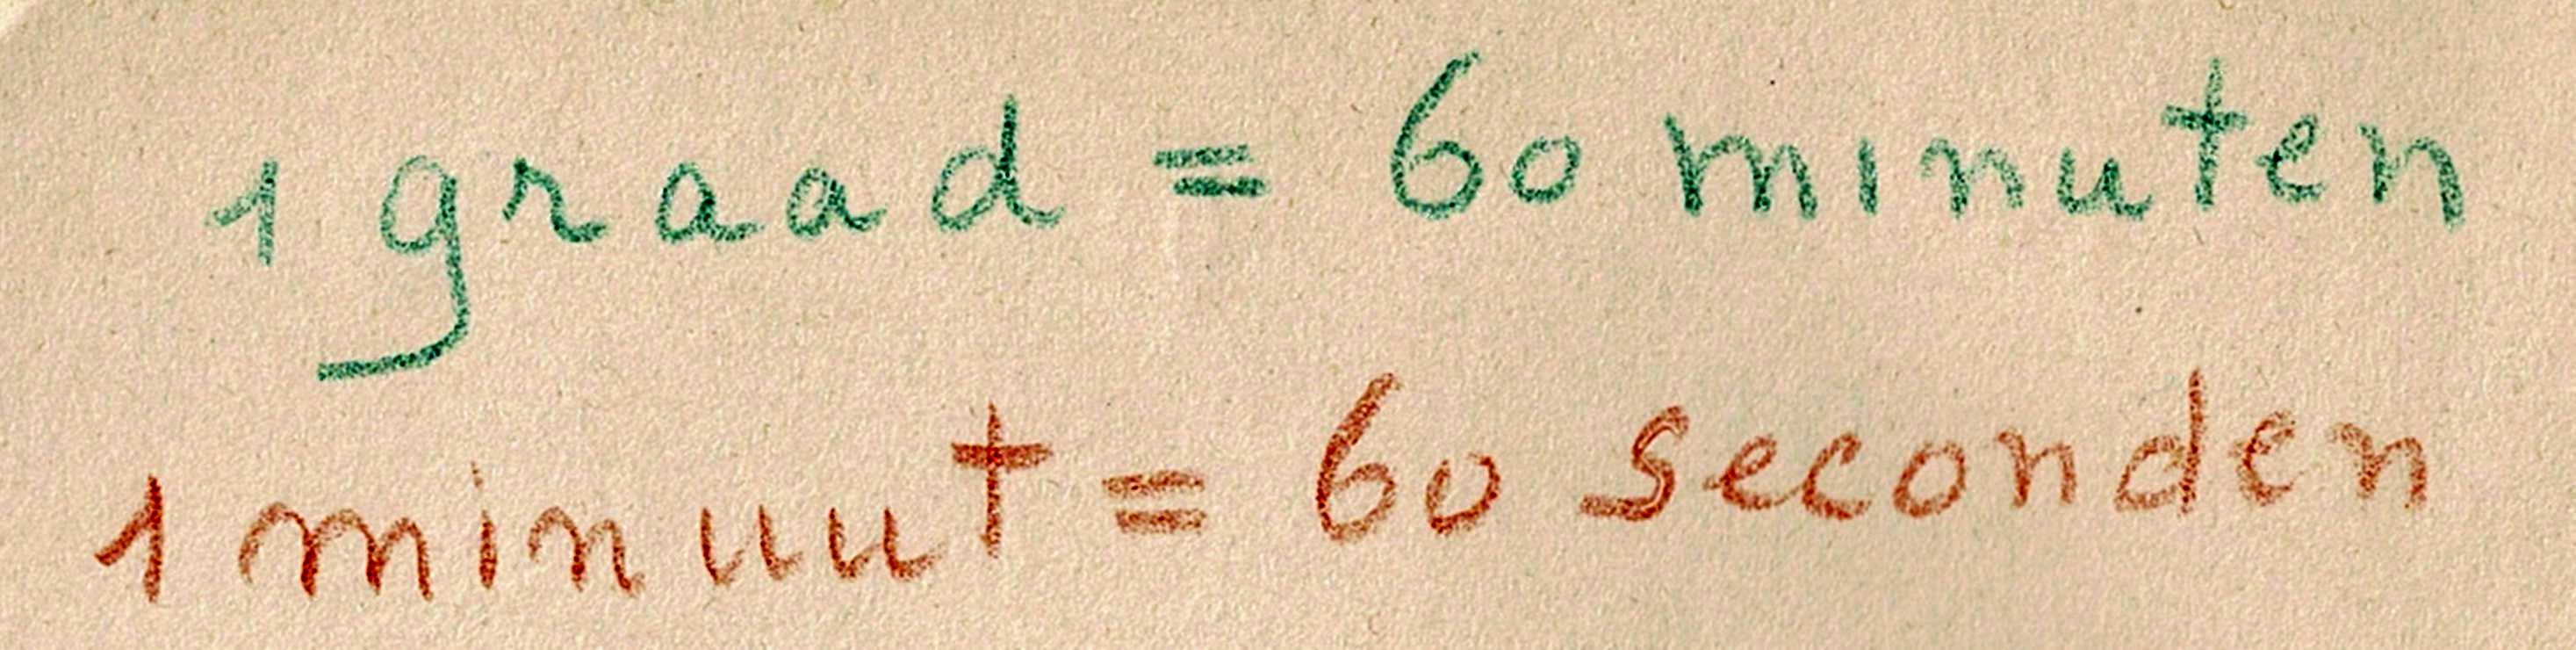 1 graad = 60 minuten
1 minuut = 60 seconden